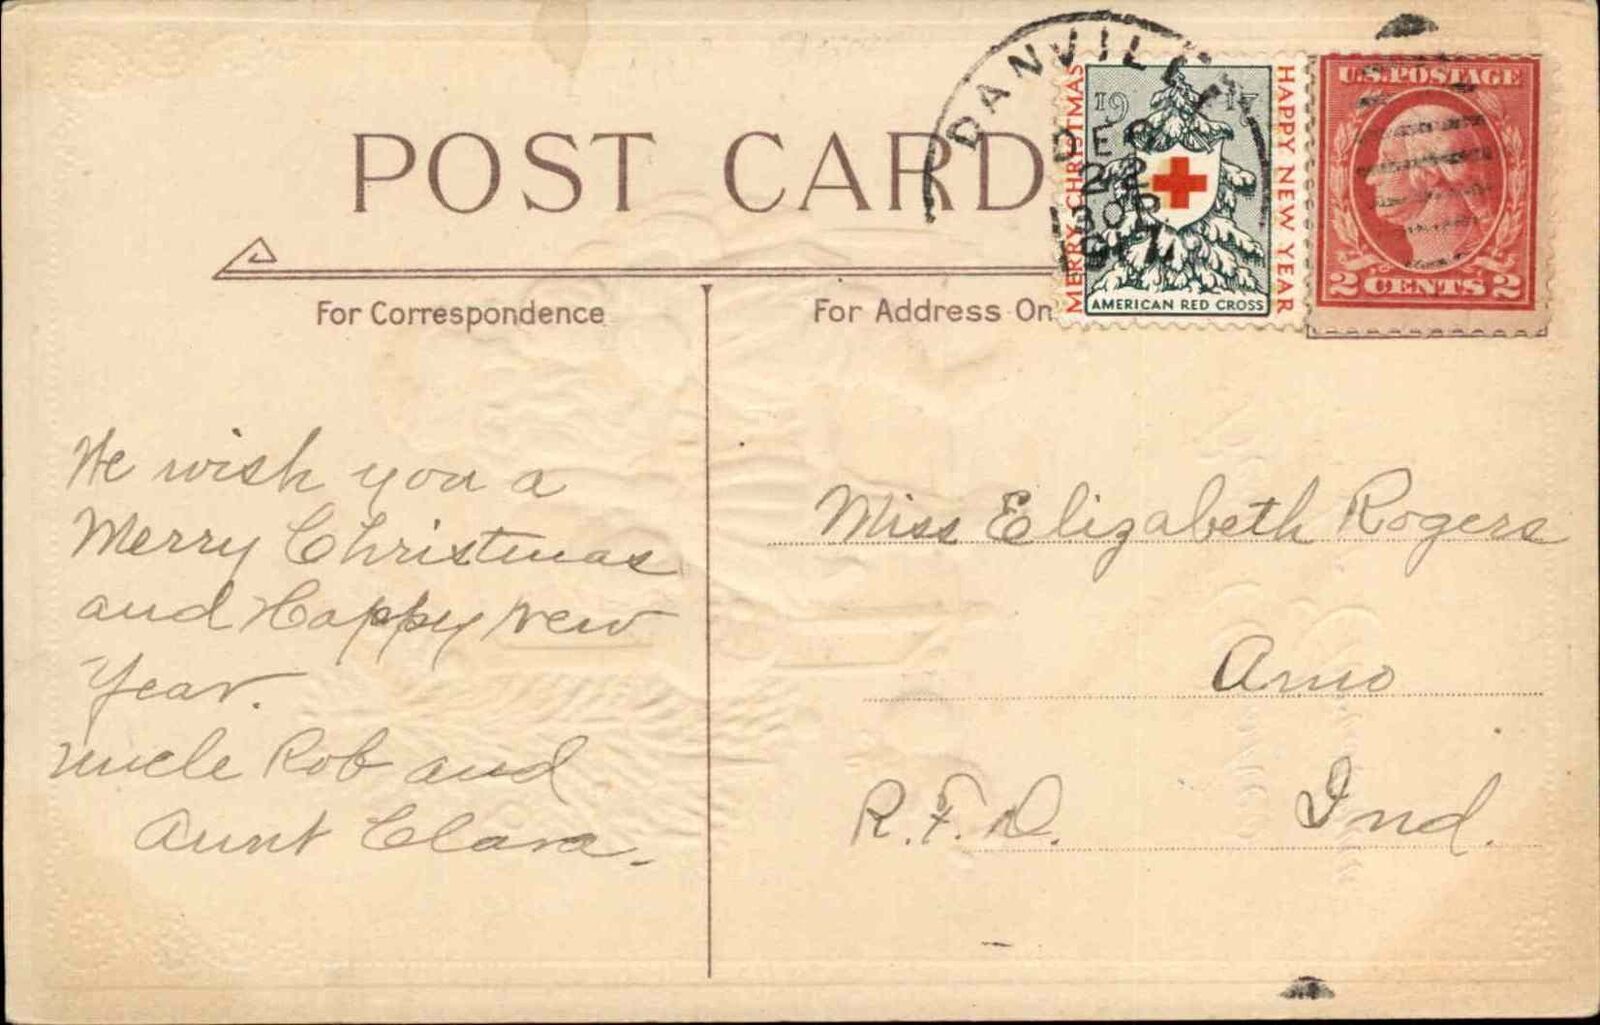 POST CARD
For Correspondence
For Address On
DANVILLE
DEC
22
30P
1917
MERRY CHRISTMAS
1917
HAPPY NEW YEAR
AMERICAN RED CROSS
U.S. POSTAGE
2 CENTS 2
We wish you a
Merry Christmas
and Happy New
Year.
Uncle Rob and
Aunt Clara.
Miss Elizabeth Rogers
Amo
R.F.D. Ind.